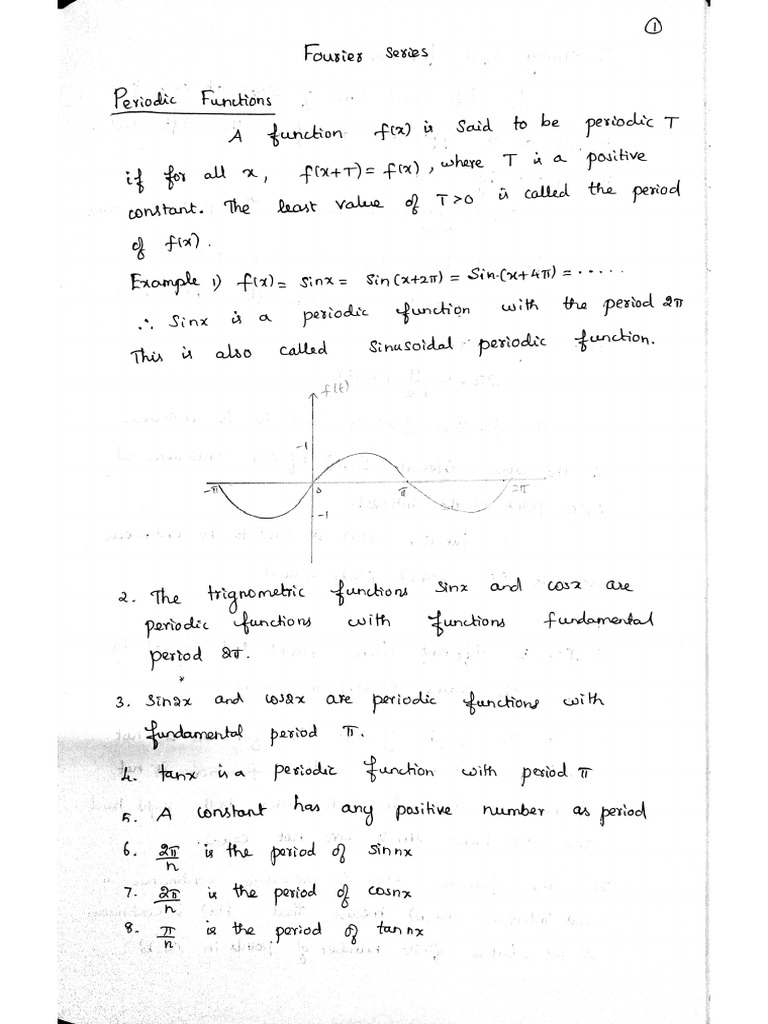 ①
Fourier series
Periodic Functions
A function f(x) is said to be periodic T
if for all x, f(x+T) = f(x), where T is a positive
constant. The least value of T>0 is called the period
of f(x).
Example 1) f(x) = sinx = sin(x+2π) = sin(x+4π) = ......
∴ sinx is a periodic function with the period 2π
This is also called sinusoidal periodic function.
f(t)
-1
-π 0 π 2π
-1
2. The trignometric functions sinx and cosx are
periodic functions with functions fundamental
period 2π.
3. sin2x and cos2x are periodic functions with
fundamental period π.
4. tanx is a periodic function with period π
5. A constant has any positive number as period
6. 2π/n is the period of sin nx
7. 2π/n is the period of cosnx
8. π/n is the period of tan nx